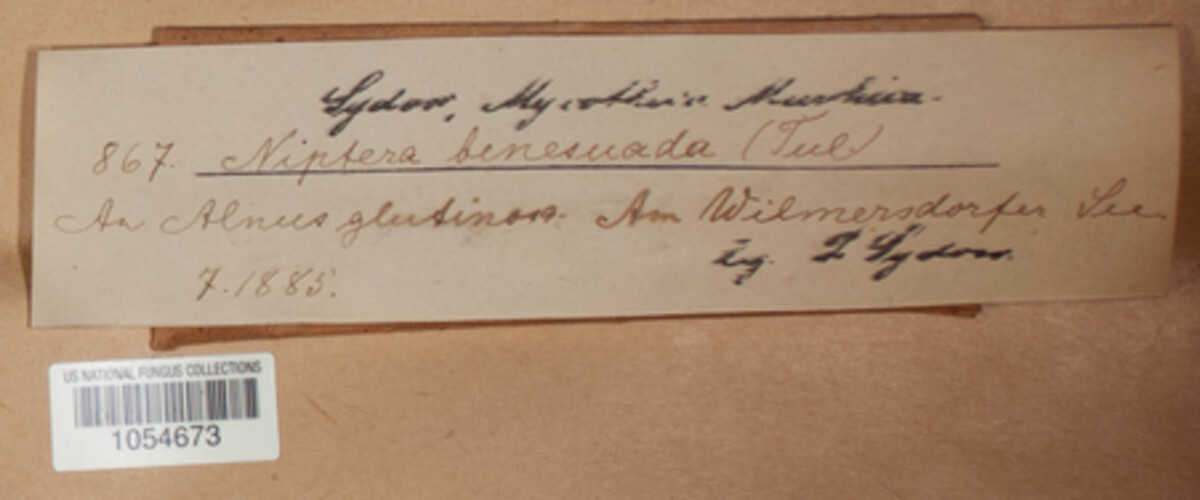 Sydow, Mycotheca Marchica.
867. Niptera benesuada (Tul)
An Alnus glutinosa. Am Wilmersdorfer See
leg. P Sydow.
7.1885.
US NATIONAL FUNGUS COLLECTIONS
1054673